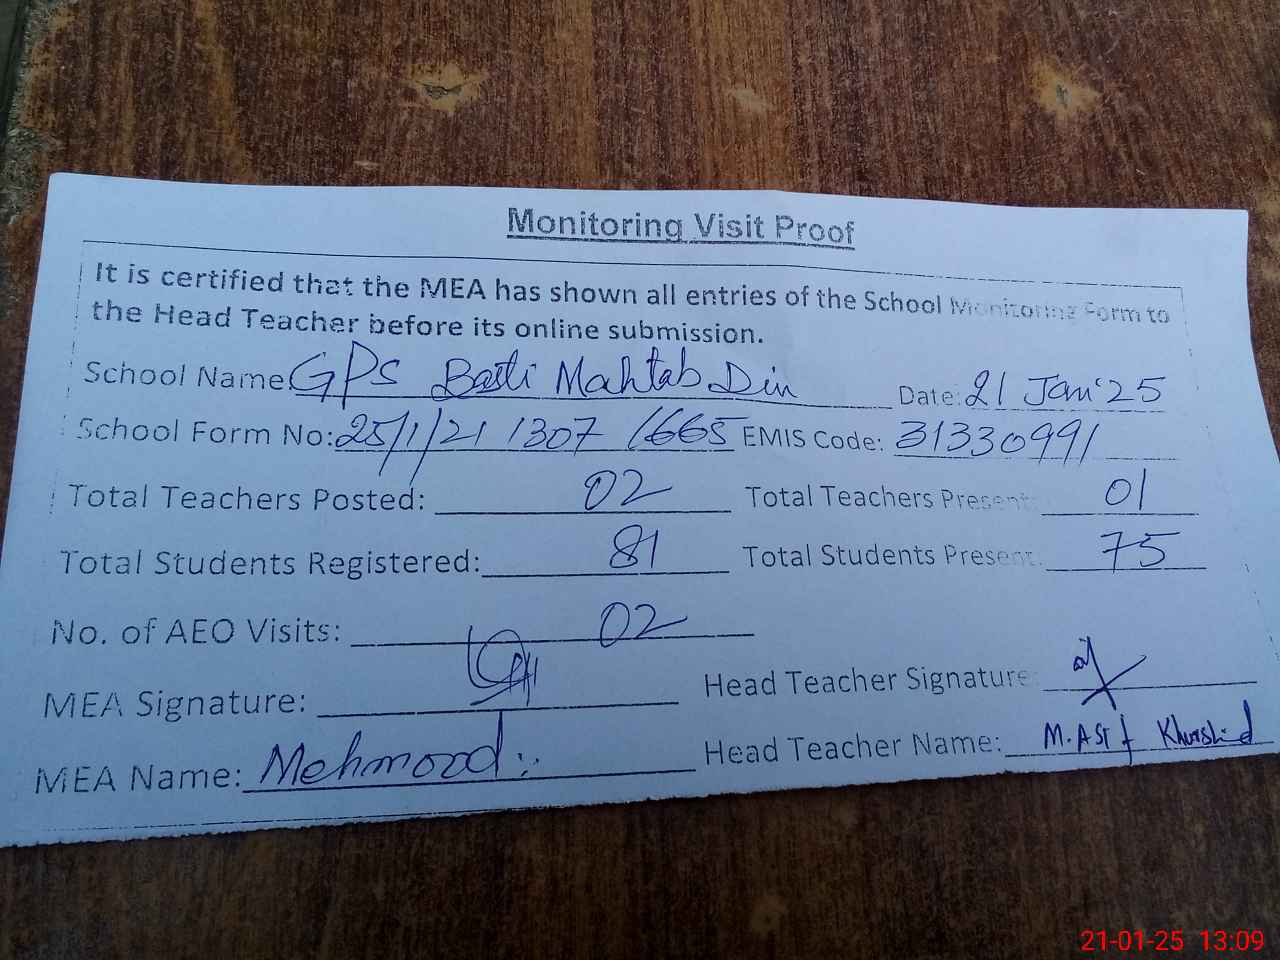 Monitoring Visit Proof
It is certified that the MEA has shown all entries of the School Monitoring Form to
the Head Teacher before its online submission.
School Name: GPS Basti Mahtab Din Date: 21 Jan'25
School Form No: 25/1/21 1307 1665 EMIS Code: 31330991
Total Teachers Posted: 02 Total Teachers Present: 01
Total Students Registered: 81 Total Students Present: 75
No. of AEO Visits: 02
MEA Signature: Head Teacher Signature:
MEA Name: Mehmood Head Teacher Name: M. Asif Khurshid
21-01-25 13:09